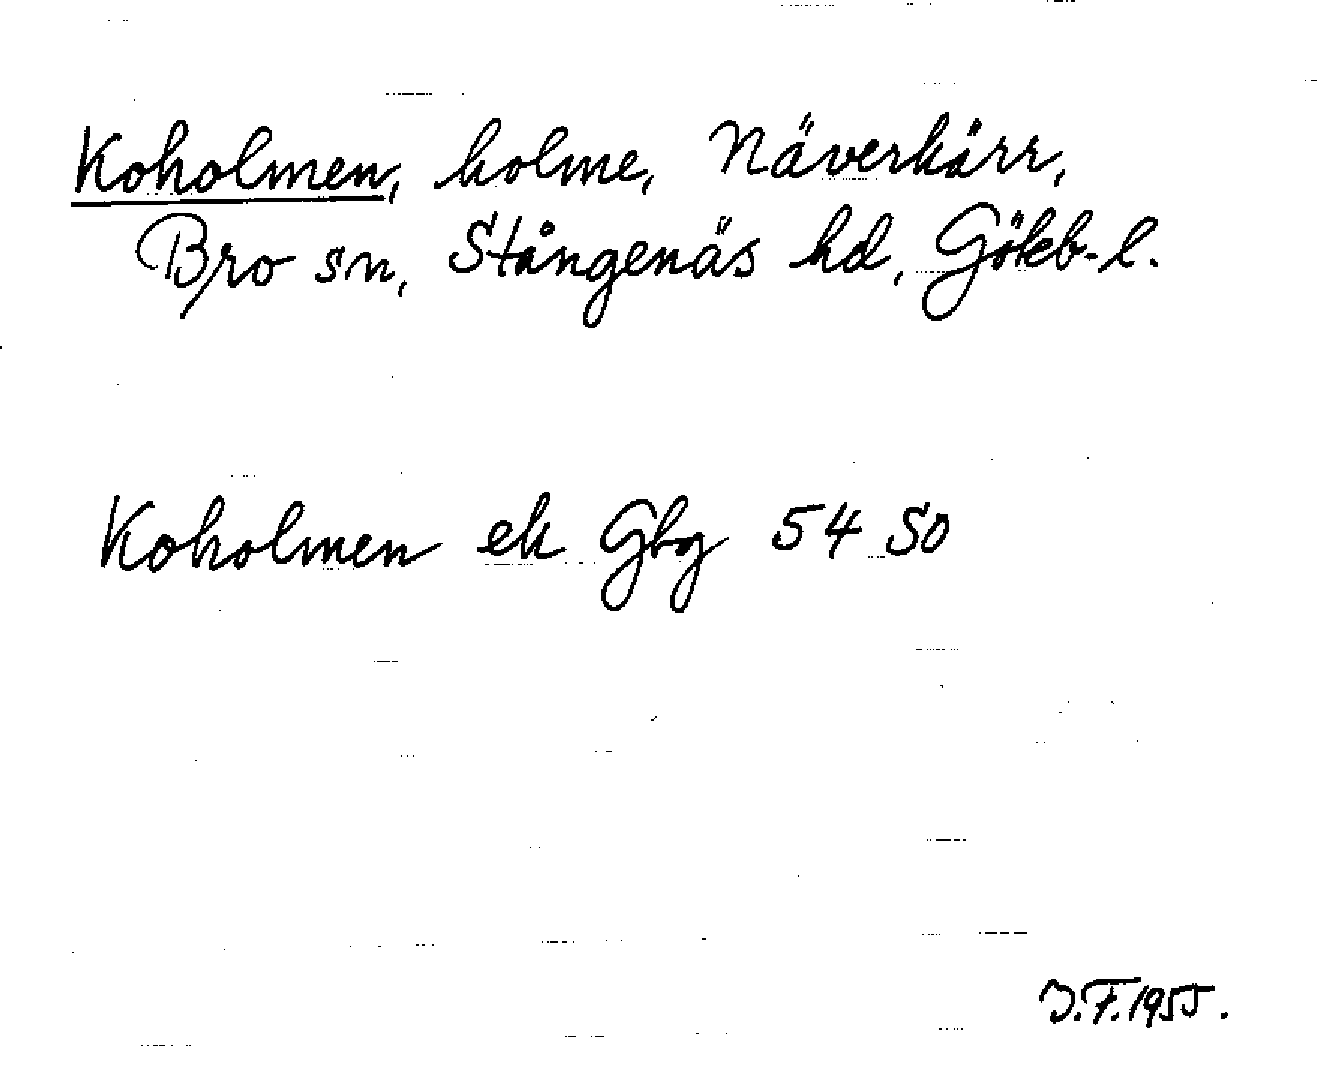 Koholmen, holme, Näverkärr,
Bro sn, Stångenäs hd, Göteb.-l.
Koholmen ek Gbg 54 SO
J.F. 1955.